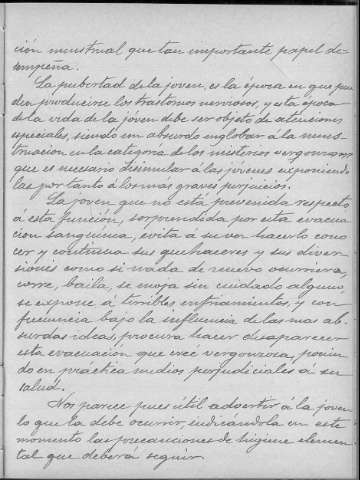 ción menstrual que tan importante papel de-
sempeña.
La pubertad de la joven, es la época en que pue
den producirse los trastornos nerviosos, y esta época
de la vida de la joven debe ser objeto de atenciones
especiales, siendo un absurdo englobar á la mens-
truación en la categoría de los misterios vergonzosos
que es necesario disimular á las jóvenes exponiendo
las por tanto á los mas graves perjuicios.
La joven que no está prevenida respecto
á esta función, sorprendida por esta evacua
ción sanguínea, evita á su vez hacerlo cono
cer y continua sus quehaceres y sus diver-
siones como si nada de nuevo ocurriera,
corre, baila, se moja sin cuidado alguno,
se expone á terribles enfriamientos, y con
frecuencia bajo la influencia de las mas ab-
surdas ideas, procura hacer desaparecer
esta evacuación que cree vergonzosa, ponien
do en práctica medios perjudiciales á su
salud.
Nos parece pues útil advertir á la joven
lo que la debe ocurrir, indicándola en este
momento las precauciones de higiene elemen-
tal que deberá seguir.